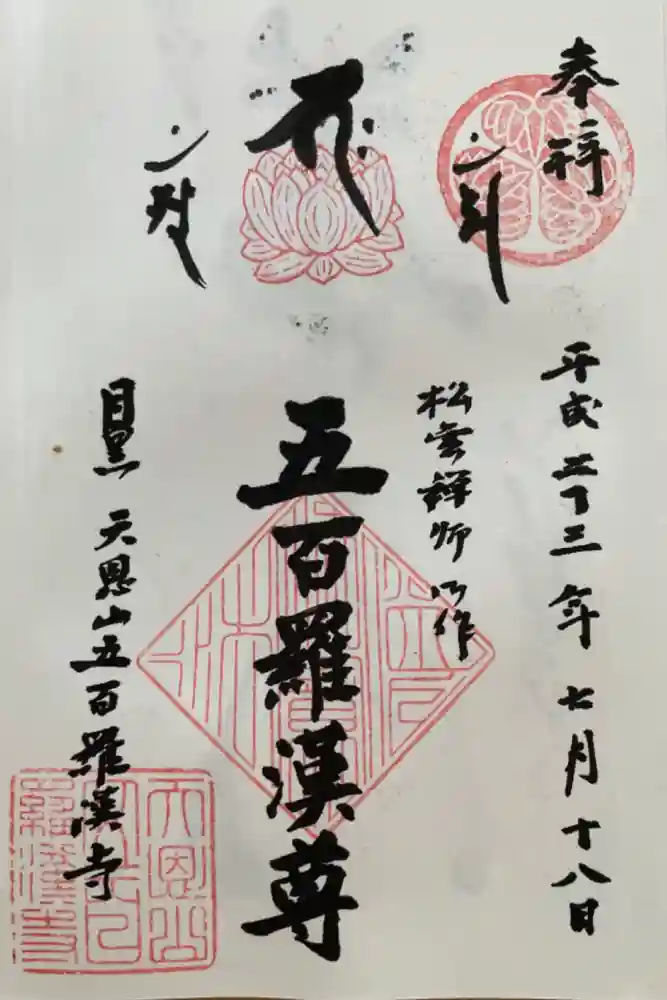 奉拝
平成二十三年七月十八日
松雲禅師御作
五百羅漢尊
目黒 天恩山五百羅漢寺
天恩山
五百
羅漢寺